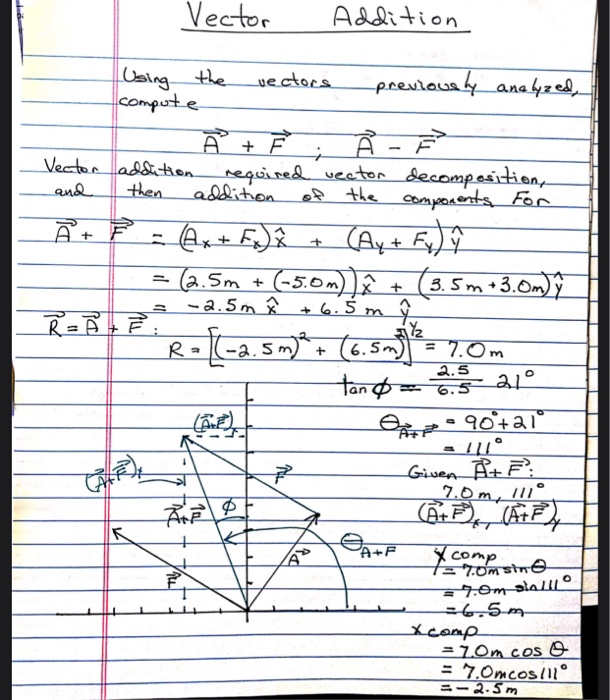 Vector Addition
Using the vectors previously analyzed,
compute
A⃗ + F⃗ ; A⃗ - F⃗
Vector addition required vector decomposition,
and then addition of the components. For
A⃗ + F⃗ = (Ax + Fx)x̂ + (Ay + Fy)ŷ
= (2.5m + (-5.0m))x̂ + (3.5m + 3.0m)ŷ
= -2.5m x̂ + 6.5m ŷ
R⃗ = A⃗ + F⃗ :
R = [(-2.5m)² + (6.5m)²]^1/2 = 7.0m
tan ϕ = 2.5/6.5 21°
θA⃗+F⃗ = 90° + 21°
= 111°
Given A⃗ + F⃗ :
7.0m, 111°
(A⃗+F⃗)x, (A⃗+F⃗)y
Y comp
= 7.0m sin θ
= 7.0m sin 111°
= 6.5m
x comp
= 7.0m cos θ
= 7.0m cos 111°
= -2.5m
(A⃗+F⃗)x
(A⃗+F⃗)y
F⃗
A⃗+F⃗
ϕ
θA+F
A⃗
F⃗